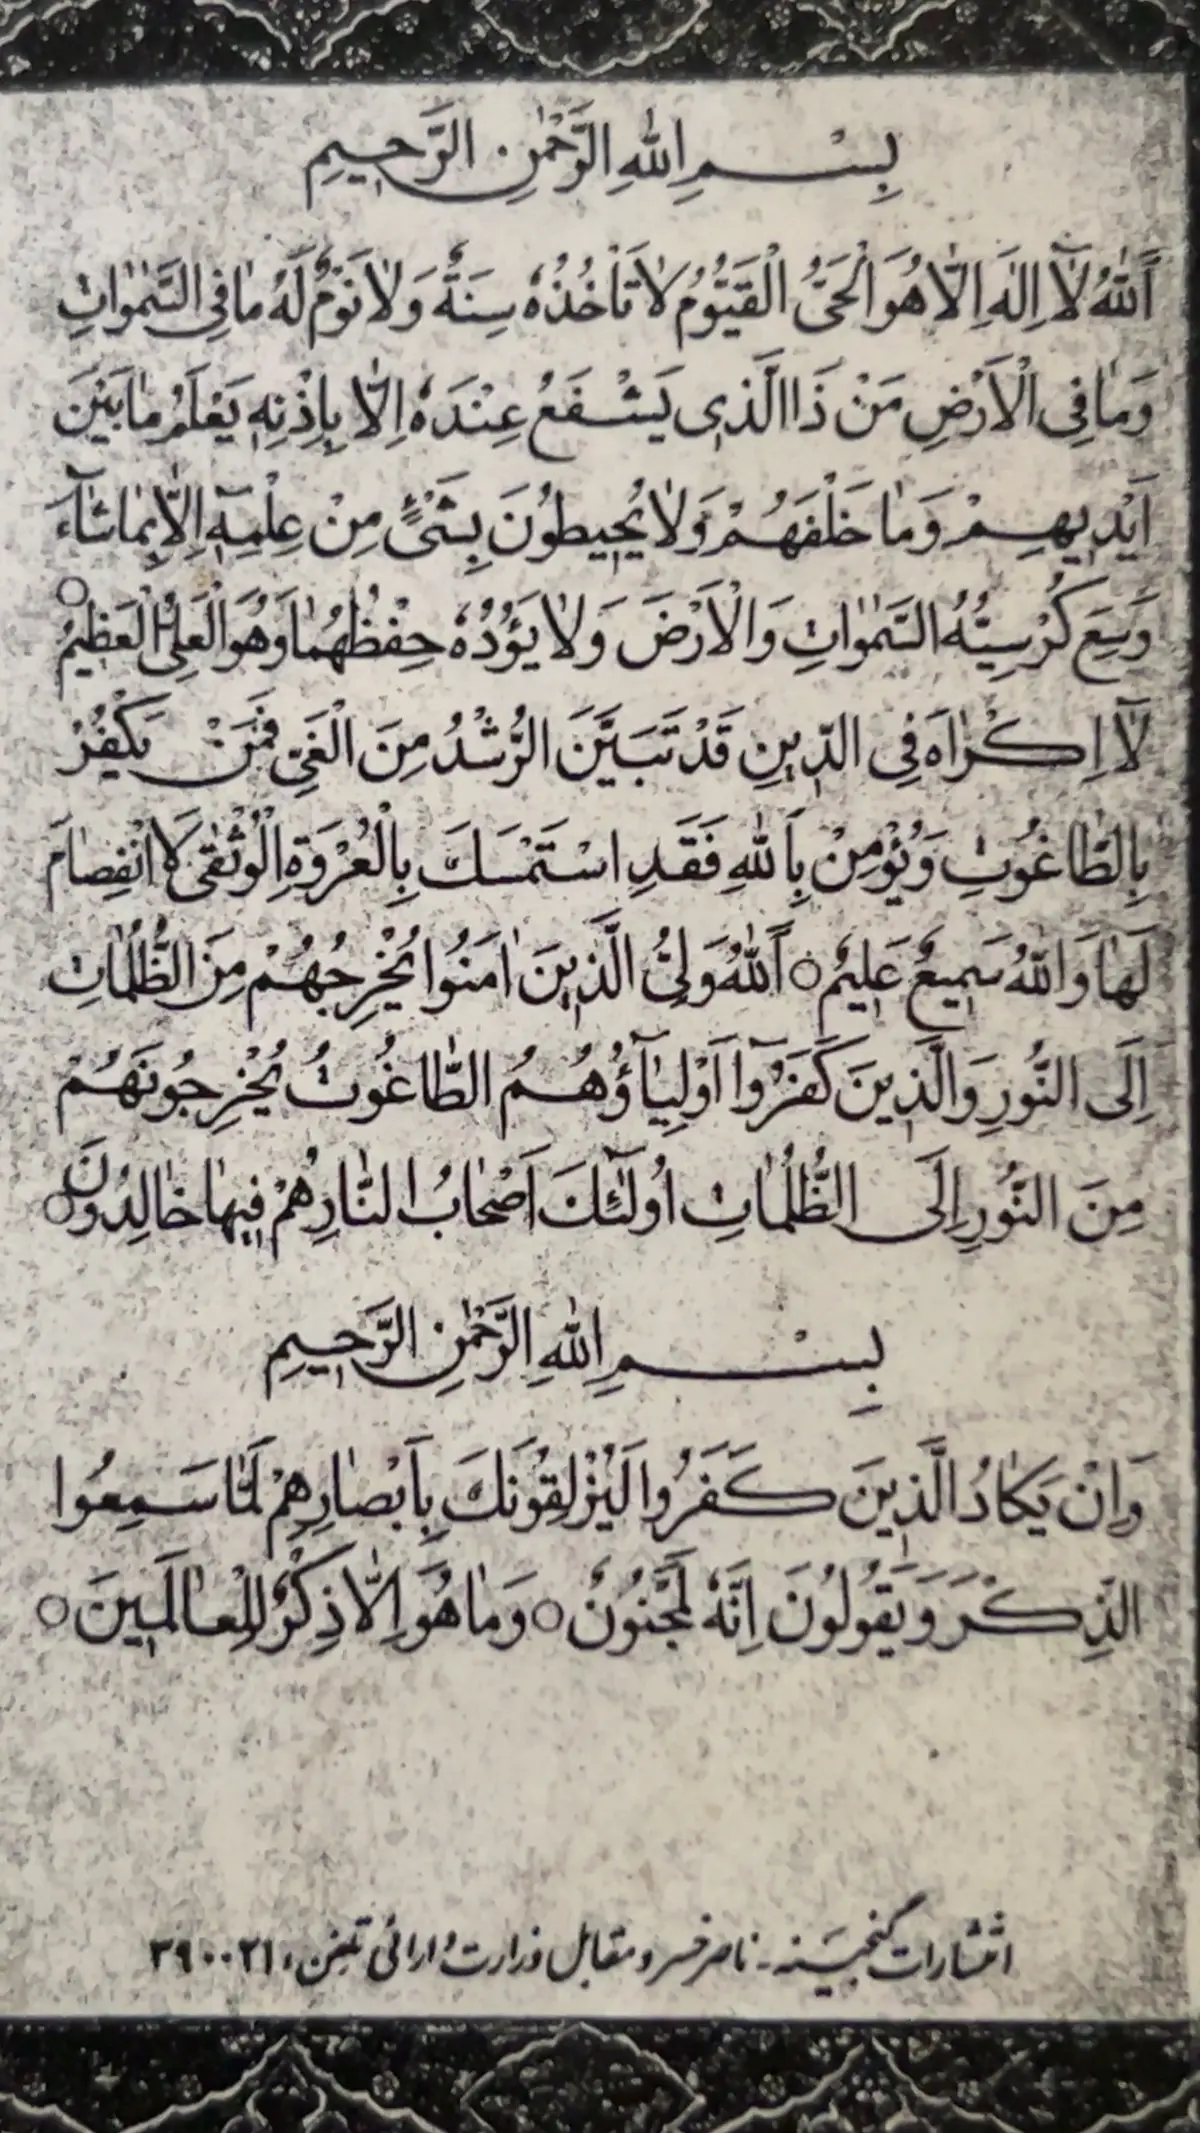 بِسْمِ اللهِ الرَّحْمٰنِ الرَّحِيمِ
اَللهُ لٰٓا اِلٰهَ اِلّٰا هُوَ الْحَىُّ الْقَيُّومُ لٰا تَأْخُذُهُ سِنَةٌ وَلٰا نَوْمٌ لَهُ مٰا فِى السَّمٰوٰاتِ
وَمٰا فِى الْاَرْضِ مَنْ ذَا الَّذٖى يَشْفَعُ عِنْدَهُ اِلّٰا بِاِذْنِهٖ يَعْلَمُ مٰا بَيْنَ
اَيْدٖيهِمْ وَمٰا خَلْفَهُمْ وَلٰا يُحٖيطُونَ بِشَىْءٍ مِنْ عِلْمِهٖٓ اِلّٰا بِمٰا شٰٓاءَ
وَسِعَ كُرْسِيُّهُ السَّمٰوٰاتِ وَالْاَرْضَ وَلٰا يَؤُدُهُ حِفْظُهُمٰا وَهُوَ الْعَلِىُّ الْعَظٖيمُ ○
لٰٓا اِكْرٰاهَ فِى الدّٖينِ قَدْ تَبَيَّنَ الرُّشْدُ مِنَ الْغَىِّ فَمَنْ يَكْفُرْ
بِالطّٰاغُوتِ وَيُؤْمِنْ بِاللهِ فَقَدِ اسْتَمْسَكَ بِالْعُرْوَةِ الْوُثْقٰى لَا انْفِصٰامَ
لَهٰا وَاللهُ سَمٖيعٌ عَلٖيمٌ ○ اَللهُ وَلِىُّ الَّذٖينَ اٰمَنُوا يُخْرِجُهُمْ مِنَ الظُّلُمٰاتِ
اِلَى النُّورِ وَالَّذٖينَ كَفَرُوٓا اَوْلِيٰٓاؤُهُمُ الطّٰاغُوتُ يُخْرِجُونَهُمْ
مِنَ النُّورِ اِلَى الظُّلُمٰاتِ اُولٰٓئِكَ اَصْحٰابُ النّٰارِ هُمْ فٖيهٰا خٰالِدُونَ ○
بِسْمِ اللهِ الرَّحْمٰنِ الرَّحِيمِ
وَاِنْ يَكٰادُ الَّذٖينَ كَفَرُوا لَيُزْلِقُونَكَ بِاَبْصٰارِهِمْ لَمّٰا سَمِعُوا
الذِّكْرَ وَيَقُولُونَ اِنَّهُ لَمَجْنُونٌ ○ وَمٰا هُوَ اِلّٰا ذِكْرٌ لِلْعٰالَمٖينَ ○
انتشارات گنجینه - ناصرخسرو مقابل وزارت دارائی تلفن: ۳۹۰۰۲۱